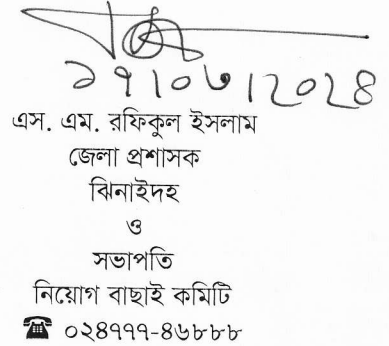 ১৭|০৩|২০২৪
এস. এম. রফিকুল ইসলাম
জেলা প্রশাসক
ঝিনাইদহ
ও
সভাপতি
নিয়োগ বাছাই কমিটি
☎ ০২৪৭৭৭-৪৬৮৮৮